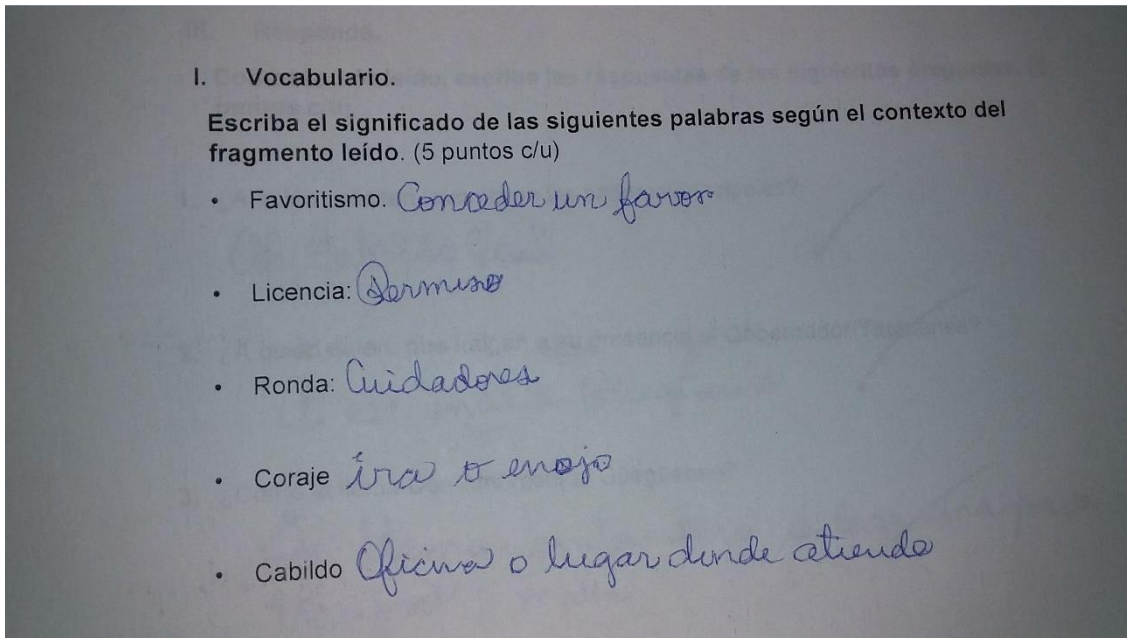 I. Vocabulario.
Escriba el significado de las siguientes palabras según el contexto del
fragmento leído. (5 puntos c/u)
• Favoritismo. Conceder un favor
• Licencia: Permiso
• Ronda: Cuidadores
• Coraje ira o enojo
• Cabildo Oficina o lugar donde atiende